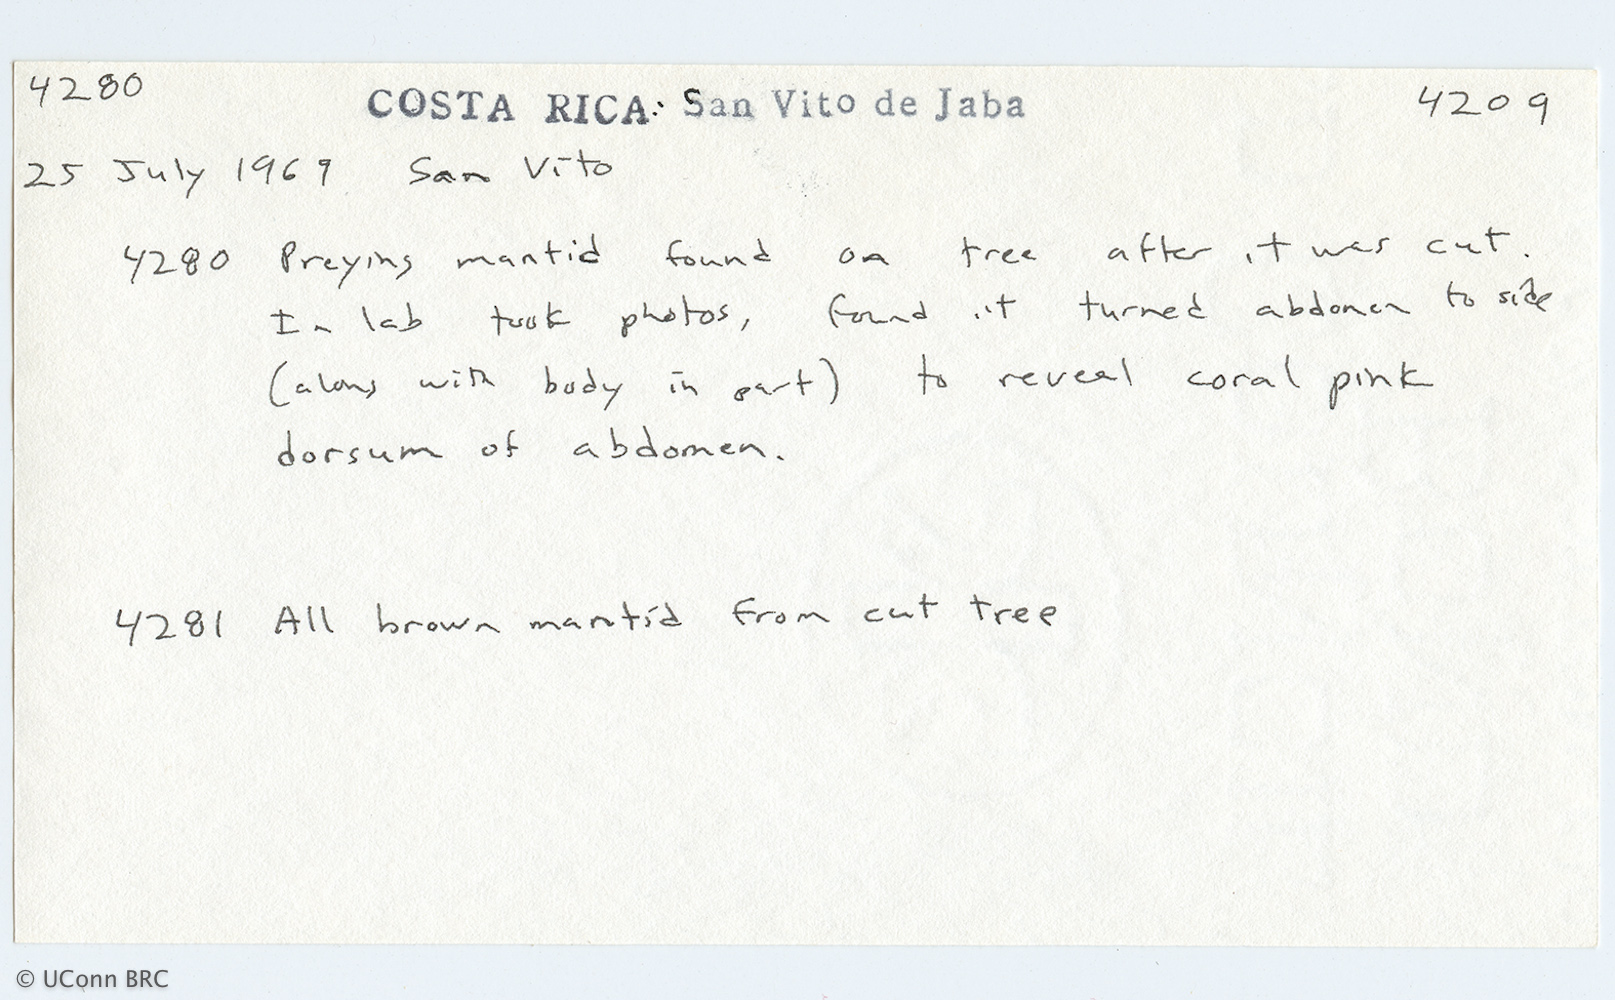 4280 COSTA RICA: San Vito de Jaba 4209
25 July 1969 San Vito
4280 Preying mantid found on tree after it was cut.
In lab took photos, found it turned abdomen to side
(along with body in part) to reveal coral pink
dorsum of abdomen.
4281 All brown mantid from cut tree
© UConn BRC